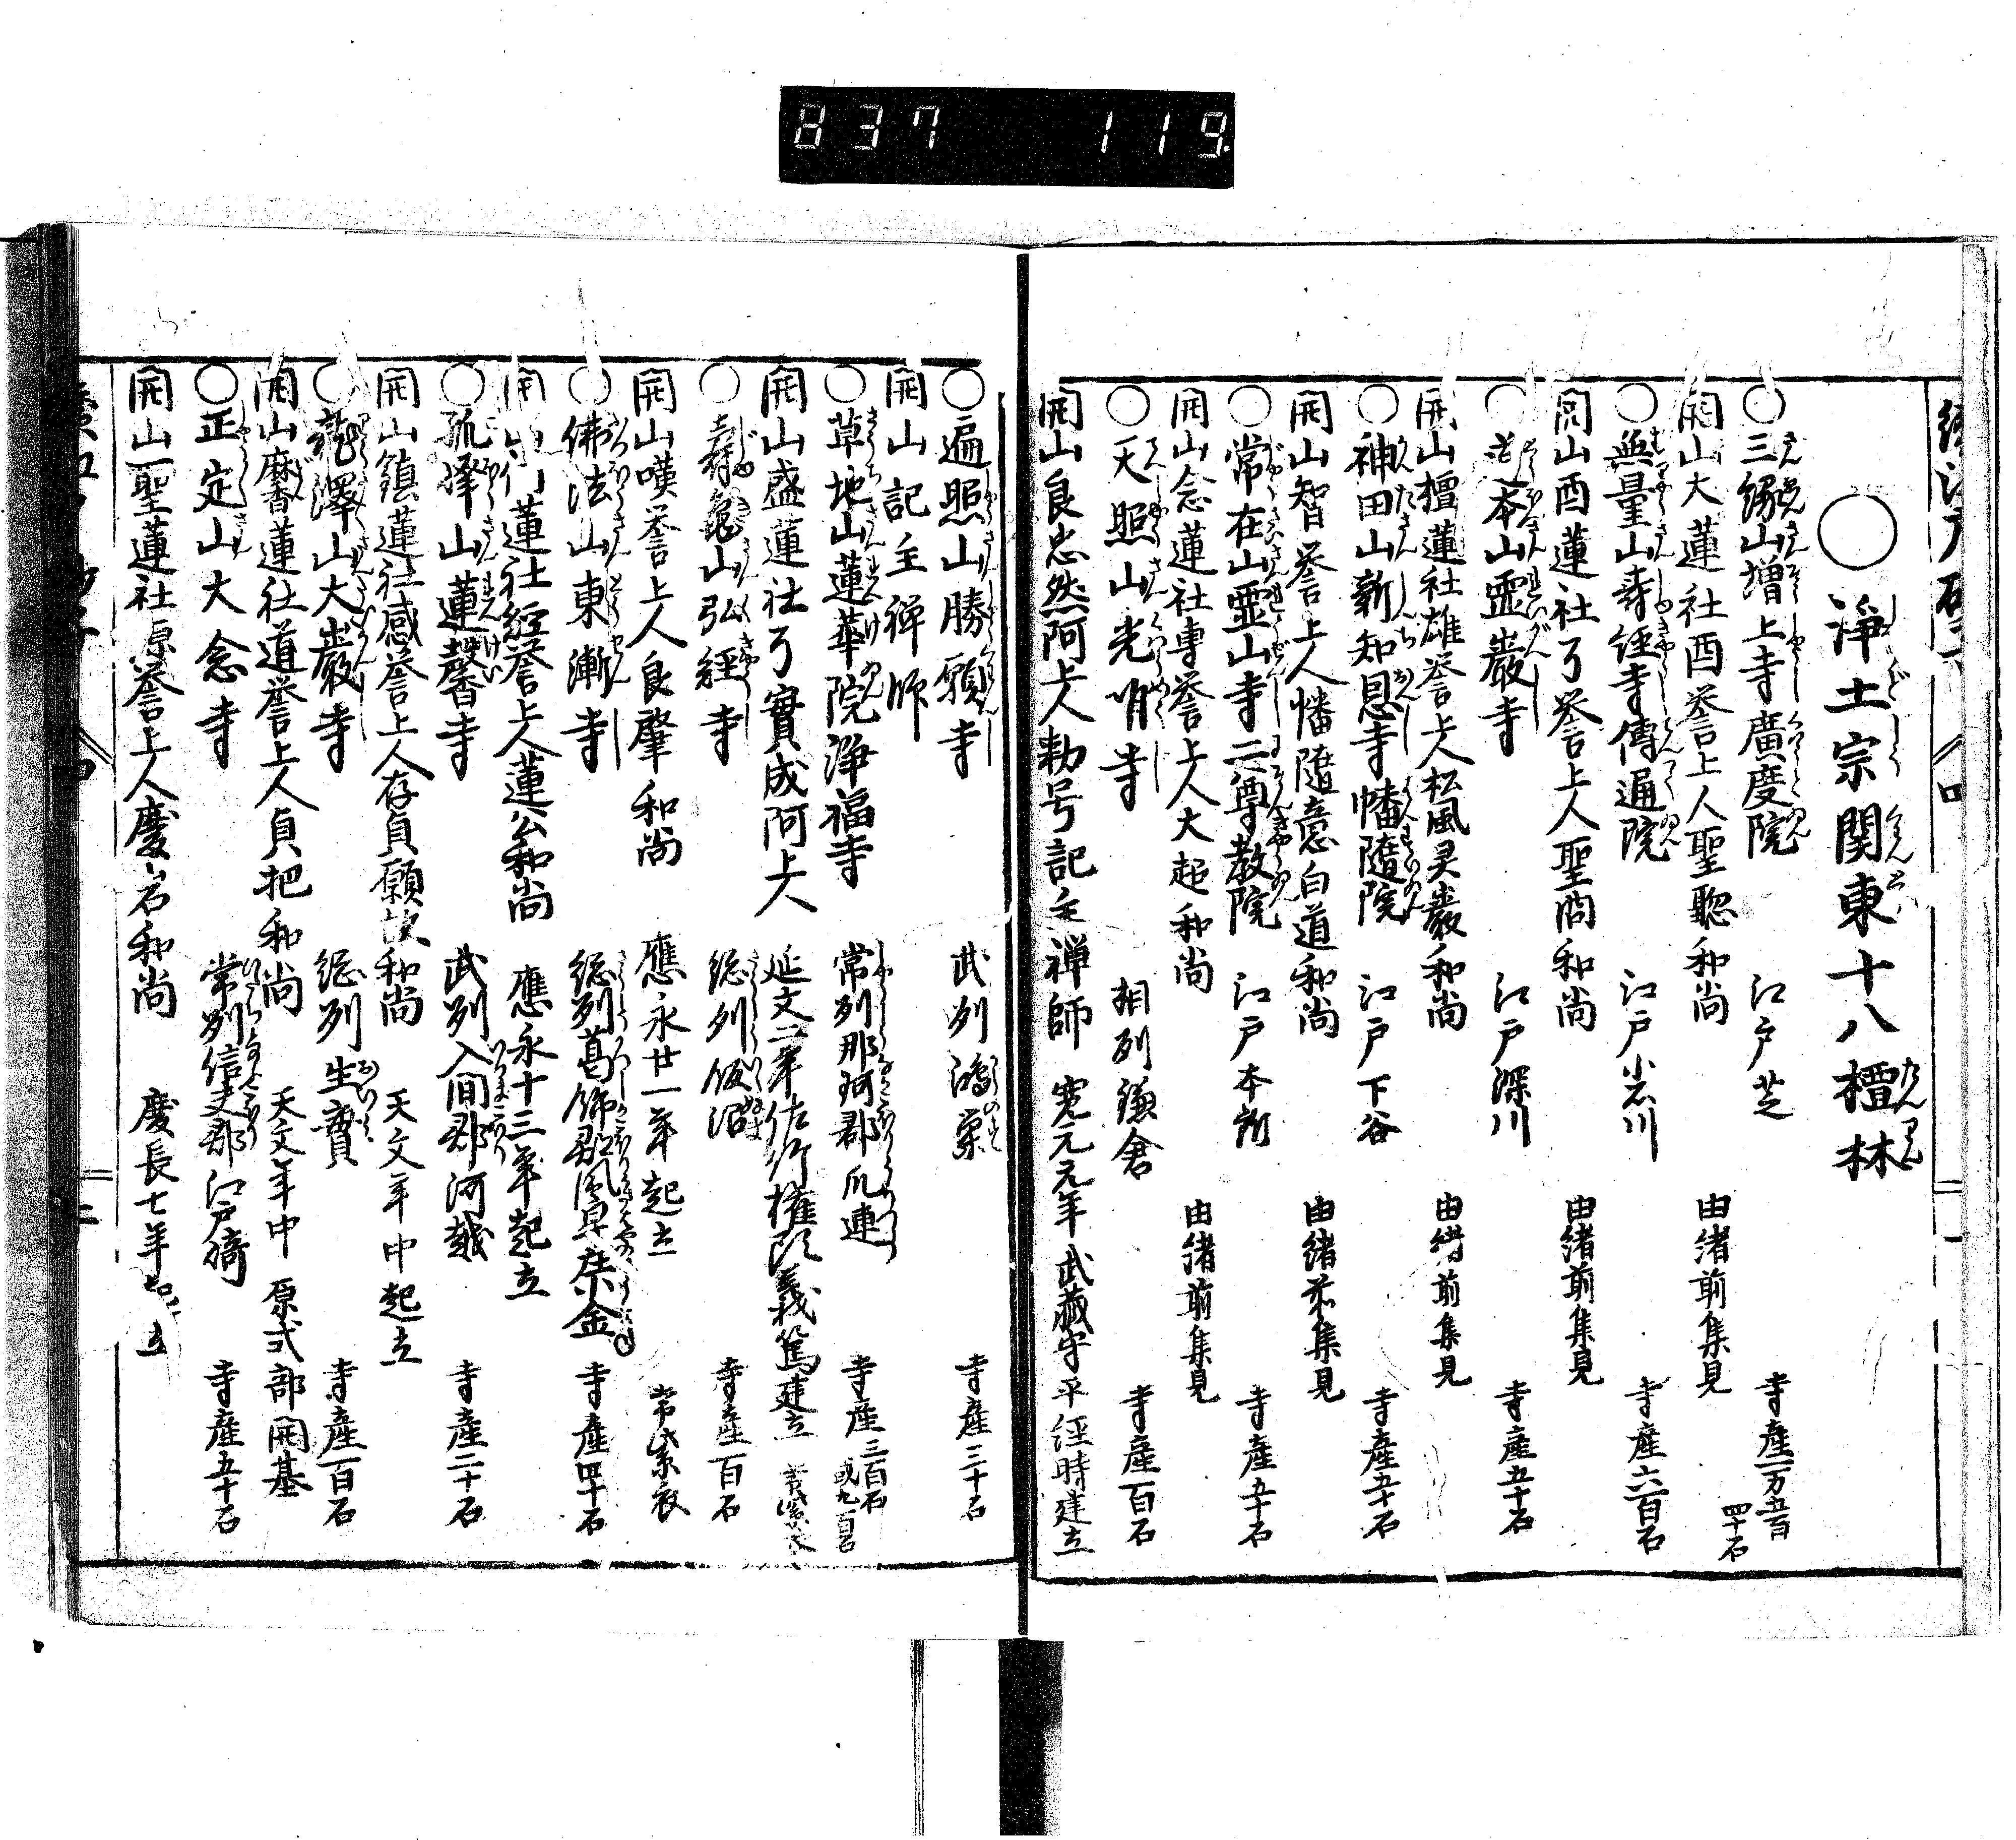 837 119
○淨土宗関東十八檀林
○三縁山増上寺廣度院 江戸芝 寺産一万五百四十石
開山大蓮社酉誉上人聖聡和尚 由緒前集見
○無量山壽経寺傳通院 江戸小石川 寺産六百石
開山酉蓮社了誉上人聖冏和尚 由緒前集見
本山霊巖寺 江戸深川 寺産五十石
開山檀蓮社雄誉上人松風灵巖和尚 由緒前集見
○神田山新知恩寺幡隨院 江戸下谷 寺産五十石
開山智誉上人幡隨意白道和尚 由緒前集見
○常在山霊山寺二尊教院 江戸本所 寺産五十石
開山念蓮社専誉上人大超和尚 由緒前集見
○天照山光明寺 相州鎌倉 寺産一百石
開山良忠然阿上人勅号記主禅師 寛元元年武蔵守平経時建立
○遍照山勝願寺 武州鴻巣 寺産三十石
開山記主禅師
○草地山蓮華院淨福寺 常州那珂郡瓜連 寺産三百石 或九百石
開山盛蓮社了實成阿上人 延文二年佐竹権頭義篤建立
○壽亀山弘経寺 総州飯沼 寺産一百石
開山嘆誉上人良肇和尚 應永廿一年起立 常紫衣
○佛法山東漸寺 総州葛飾郡風早庄小金 寺産四十石
開山行蓮社経誉上人蓮公和尚 應永十三年起立
○孤峰山蓮馨寺 武州入間郡河越 寺産二十石
開山鎮蓮社感誉上人存貞願故和尚 天文年中起立
○龍澤山大巖寺 総州生實 寺産一百石
開山麐蓮社道誉上人貞把和尚 天文年中 原式部開基
○正定山大念寺 常州信太郡江戸崎 寺産五十石
開山聖蓮社源誉上人慶岩和尚 慶長七年起立